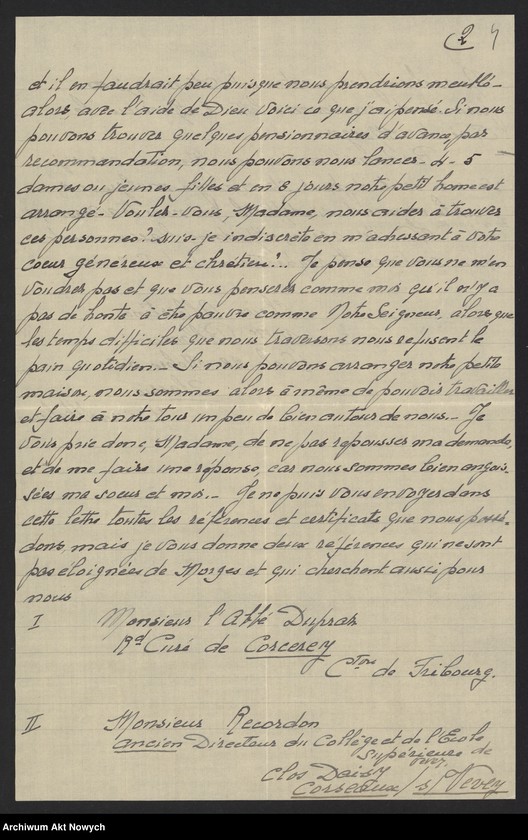 2 4
et il en faudrait peu puisque nous prendrions meublé -
alors, avec l'aide de Dieu voici ce que j'ai pensé. Si nous
pouvons trouver quelques pensionnaires d'avance, par
recommandation, nous pouvons nous lancer - 4 - 5
dames ou jeunes filles et en 8 jours notre petit home est
arrangé - Voulez-vous, Madame, nous aider à trouver
ces personnes? suis-je indiscrète en m'adressant à votre
coeur généreux et chrétien?.. Je pense que vous ne m'en
voudrez pas et que vous penserez comme moi qu'il n'y a
pas de honte à être pauvre comme Notre Seigneur, alors que
les temps difficiles que nous traversons nous refusent le
pain quotidien - Si nous pouvons arranger notre petite
maison, nous sommes alors à même de pouvoir travailler
et faire à notre tour un peu de bien autour de nous - Je
vous prie donc, Madame, de ne pas repousser ma demande,
et de me faire une réponse, car nous sommes bien angois-
sées ma soeur et moi - Je ne puis vous envoyer dans
cette lettre toutes les références et certificats que nous possé-
dons, mais je vous donne deux références qui ne sont
pas eloignées de Morges et qui cherchent aussi pour
nous
I Monsieur l'Abbé Dupraz
Rd Curé de Corcerey
Cton de Fribourg.
II Monsieur Recordon
ancien Directeur du Collège et de l'Ecole
Supérieure de
Vevey.
Clos Daisy
Corseaux / s / Vevey
Archiwum Akt Nowych